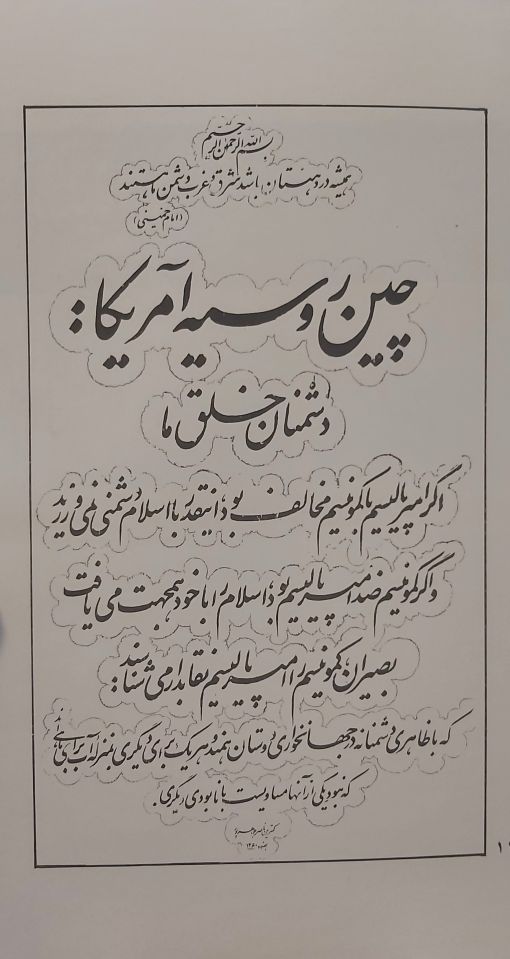 بسم الله الرحمن الرحیم
همیشه در ذهنتان باشد شرق و غرب دشمن ما هستند
(امام خمینی)
چین روسیه آمریکا:
دشمنان خلق ما
اگر امپریالیسم با کمونیسم مخالف بود، اینقدر با اسلام دشمنی نمی ورزید
و اگر کمونیسم ضد امپریالیسم بود، اسلام را با خود همجهت می یافت
بصیران، کمونیسم را امپریالیسم نقابدار می شناسند:
که با ظاهری دشمنانه در جهانخوری دوستان همند و هر یک برای دیگری بمنزله آب برای ماهی اند
که نبود یکی از آنها مساویست با نابودی دیگری.